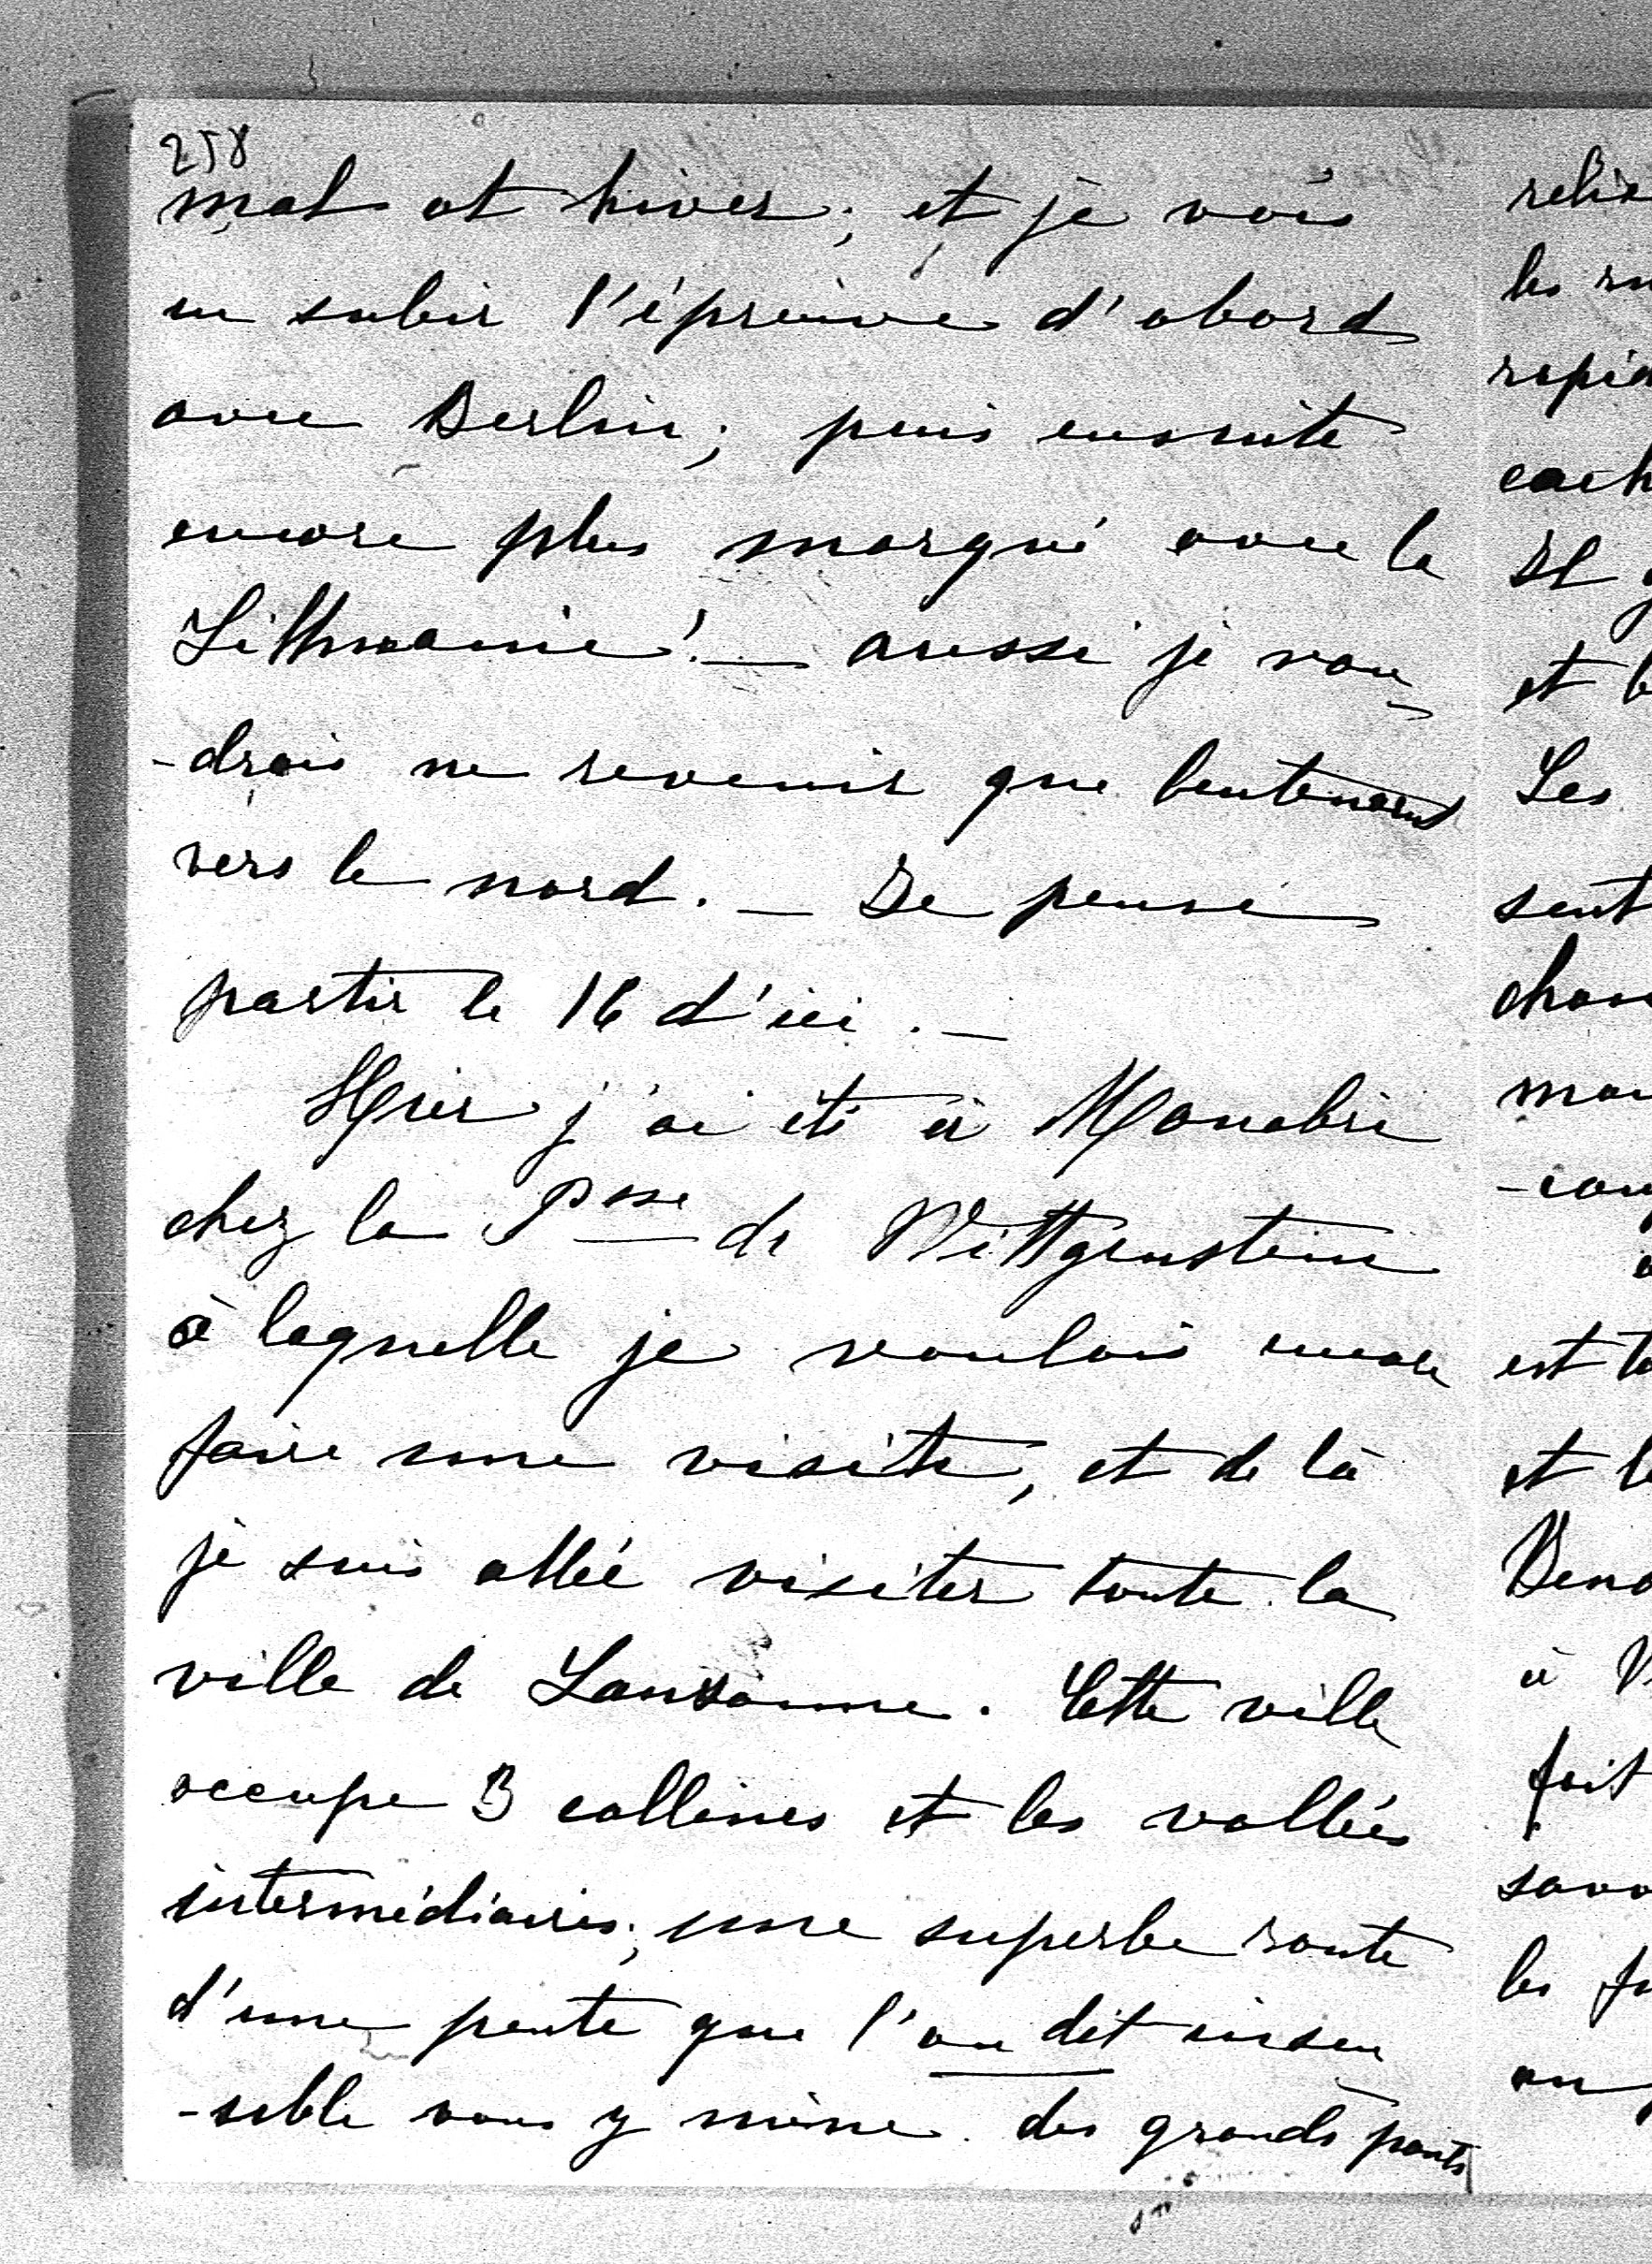 258
mal et hiver; et je vais
en subir l'épreuve d'abord
avec Berlin; puis ensuite
encore plus marqué avec la
Lithuanie! — aussi je vou-
-drais ne revenir que lentement
vers le nord. — Je pense
partir le 16 d'ici. —
Hier j'ai été à Monabri
chez la Psse de Wittgenstein
à laquelle je voulais encore
faire une visite, et de là
je suis allée visiter toute la
ville de Lausanne. Cette ville
occupe 3 collines et les vallées
intermédiaires; une superbe route
d'une pente que l'on dit insen
-sible vous y mène. des grands ponts